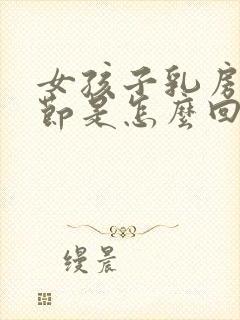 女孩子乳房
節是怎麼回
缦晨